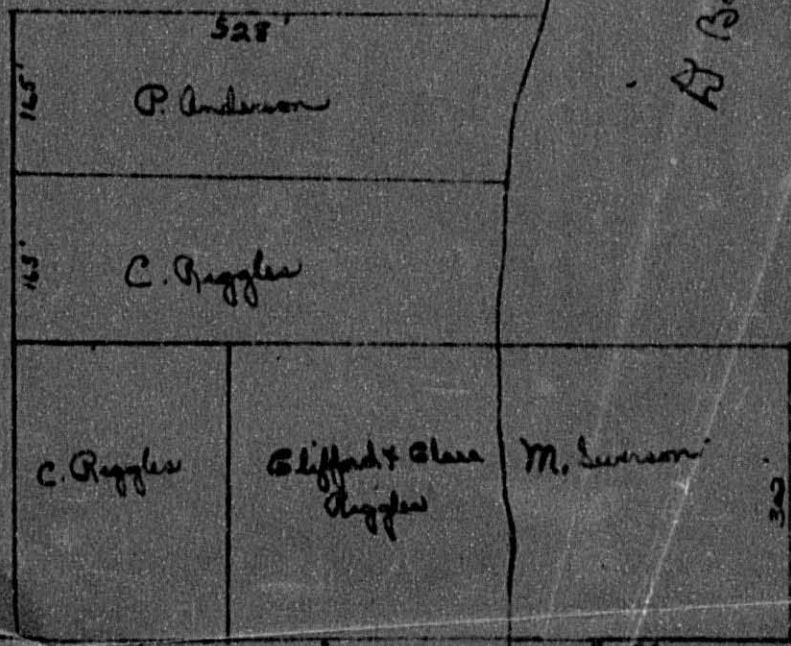 528'
165'
P. Anderson
165'
C. Riggles
C. Riggles
Clifford & Clara
Riggles
M. Severson